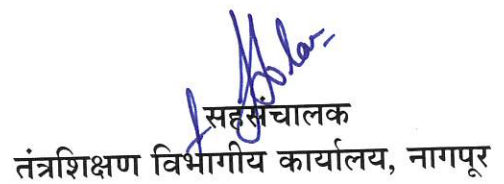 सहसंचालक
तंत्रशिक्षण विभागीय कार्यालय, नागपूर